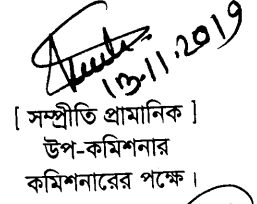 13.11.2019
[ সম্প্রীতি প্রামানিক ]
উপ-কমিশনার
কমিশনারের পক্ষে ।